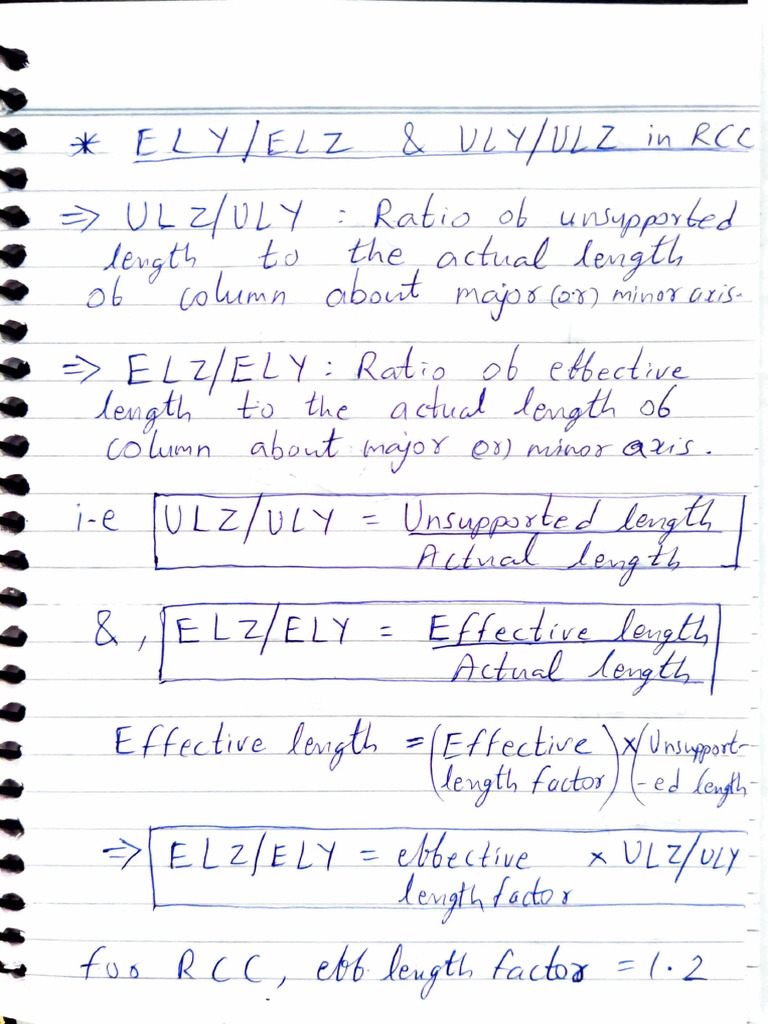 * ELY/ELZ & ULY/ULZ in RCC
=> ULZ/ULY : Ratio of unsupported
length to the actual length
of column about major (or) minor axis.
=> ELZ/ELY : Ratio of effective
length to the actual length of
column about major or) minor axis.
i-e ULZ/ULY = Unsupported length
Actual length
& , ELZ/ELY = Effective length
Actual length
Effective length = (Effective) x (Unsupport-
(length factor) (-ed length-
=> ELZ/ELY = effective x ULZ/ULY
length factor
for RCC, eff. length factor = 1.2